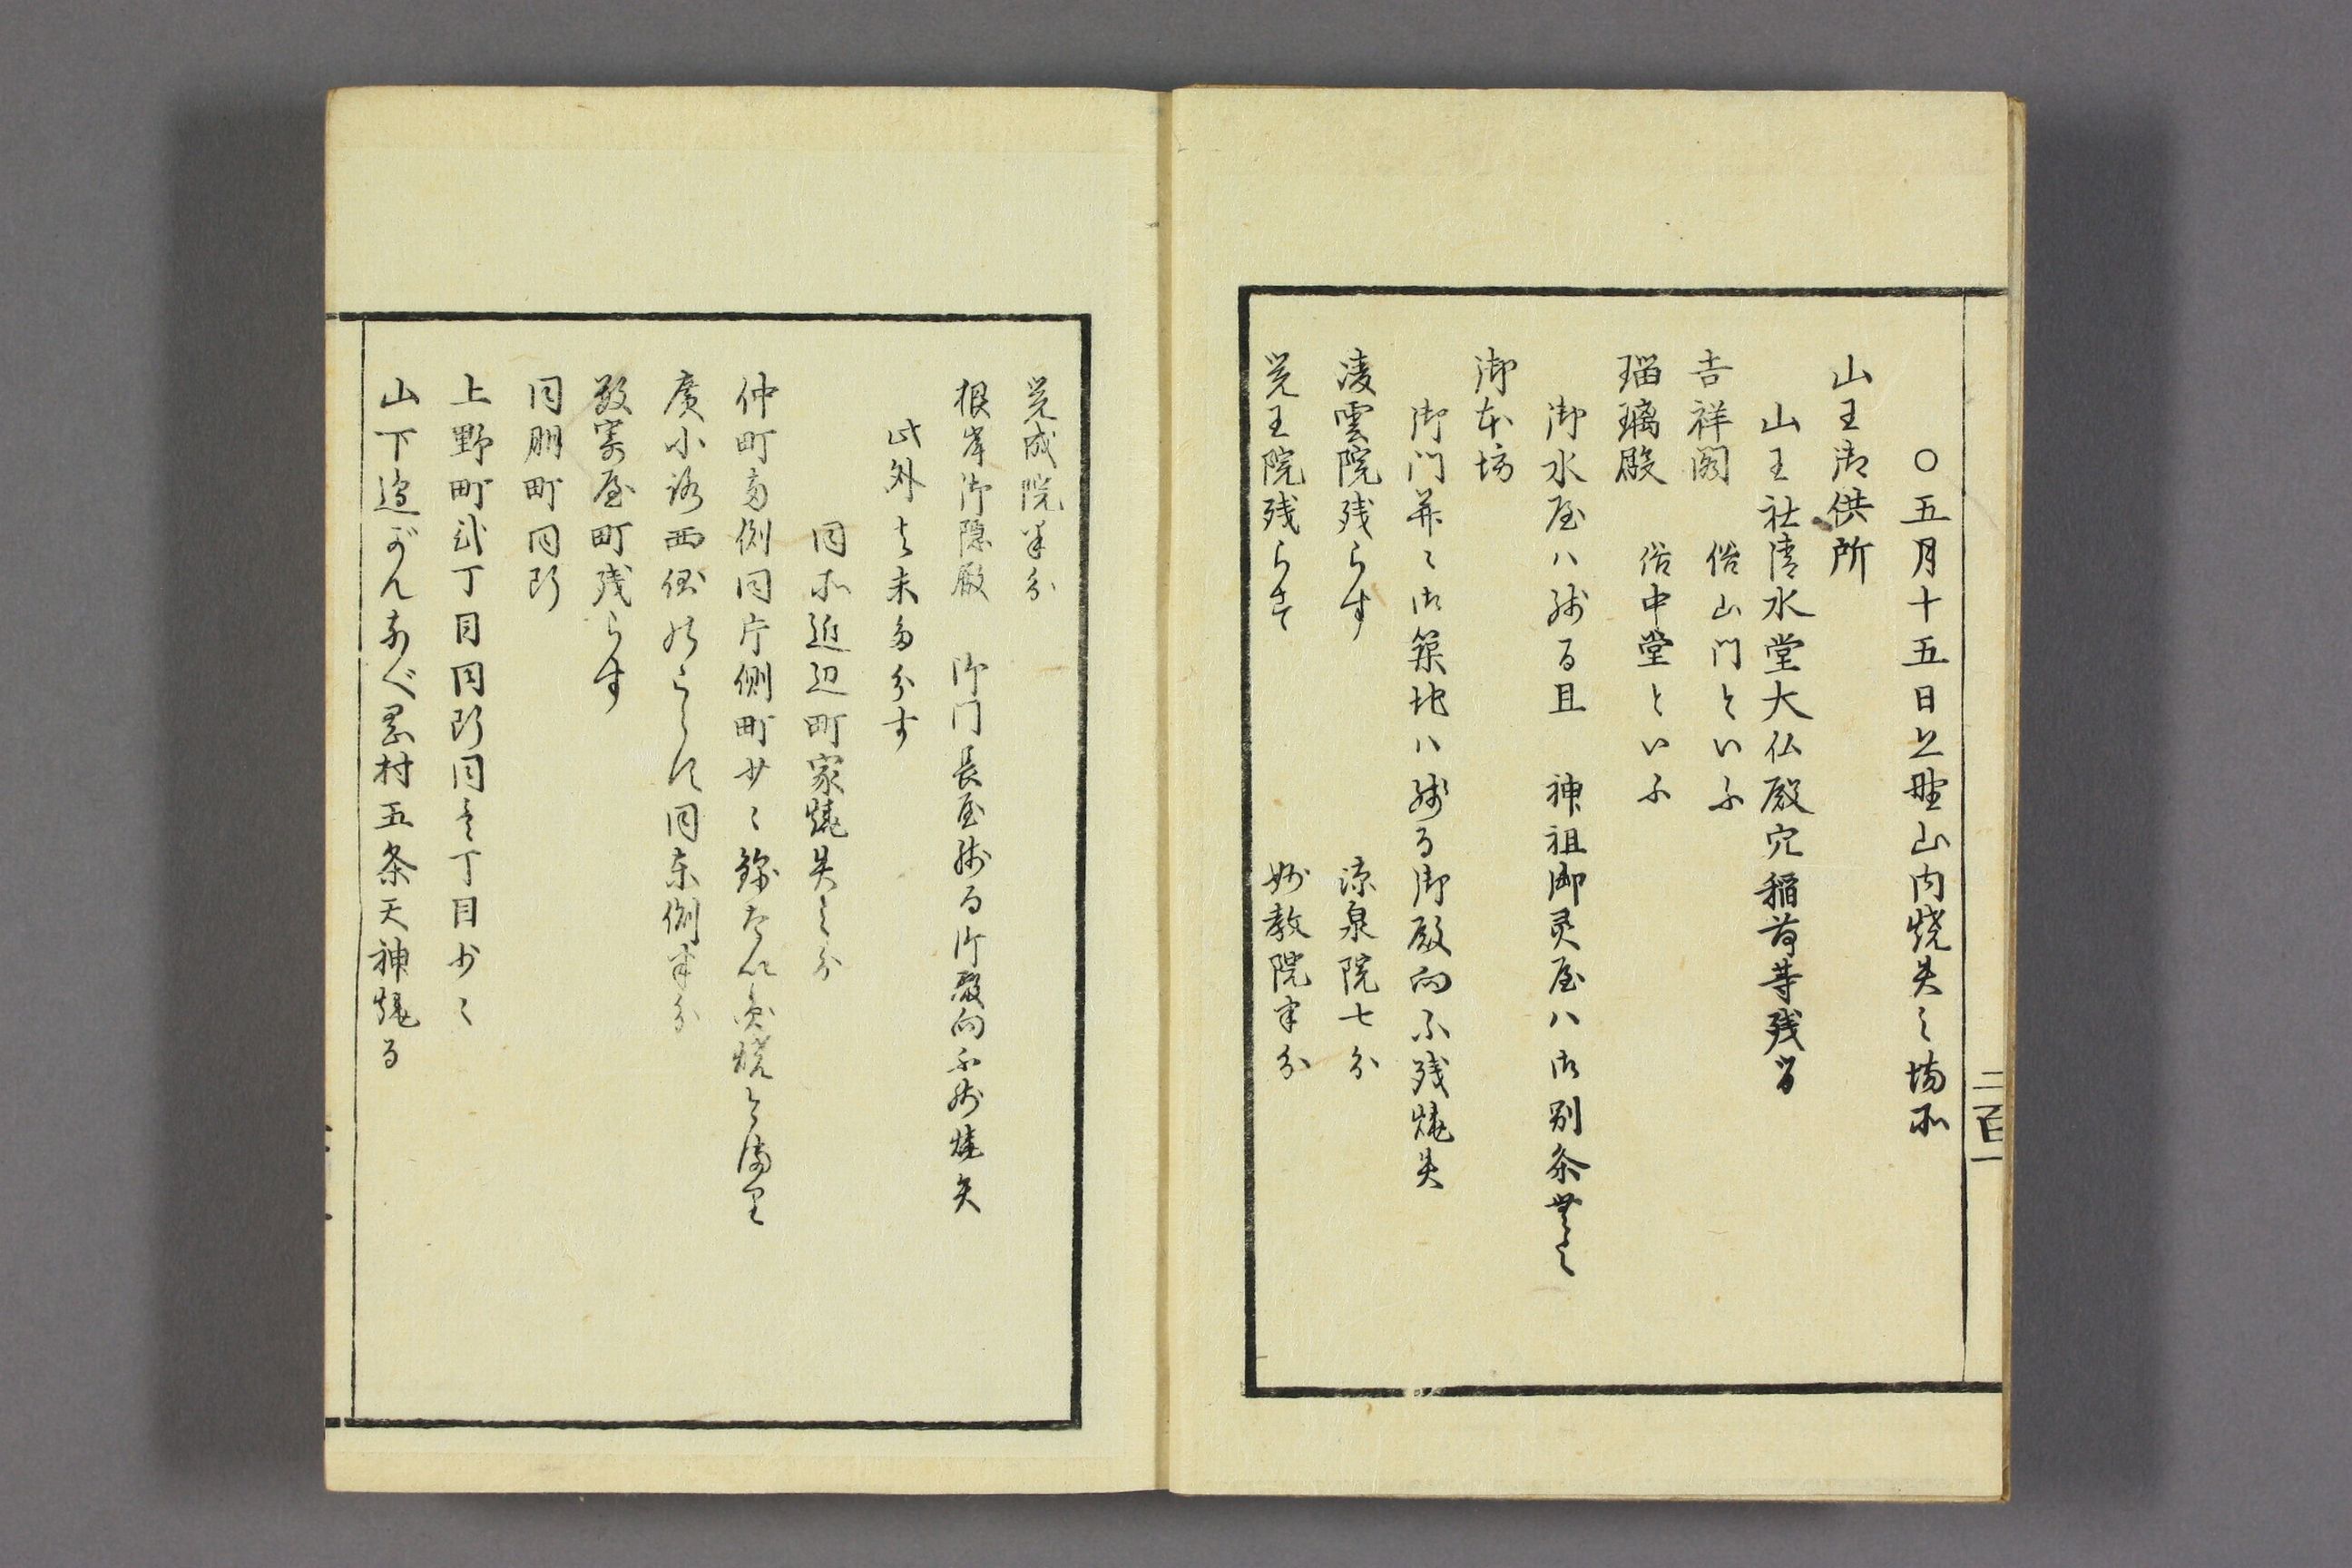 ○五月十五日上野山内焼失之場所
山王御供所
山王社清水堂大仏殿穴稲荷等残る
吉祥閣　俗山門といふ
瑠璃殿　俗中堂といふ
御水屋ハ残る且　神祖御灵屋ハ御別条無之
御本坊
御門并ニ御築地ハ残る御殿向不残焼失
凌雲院残らす　涼泉院七分
覚王院残らす　妙教院半分
二百一
覚成院半分
根岸御隠殿　御門長屋残る御殿向不残焼失
此外は未多分す
同所近辺町家焼失之分
仲町両側同片側町少々
廣小路西側のこらす同東側半分
数寄屋町残らす
同朋町同断
上野町弐丁目同断同壱丁目少々
山下辺がんなべ岡村五条天神焼る